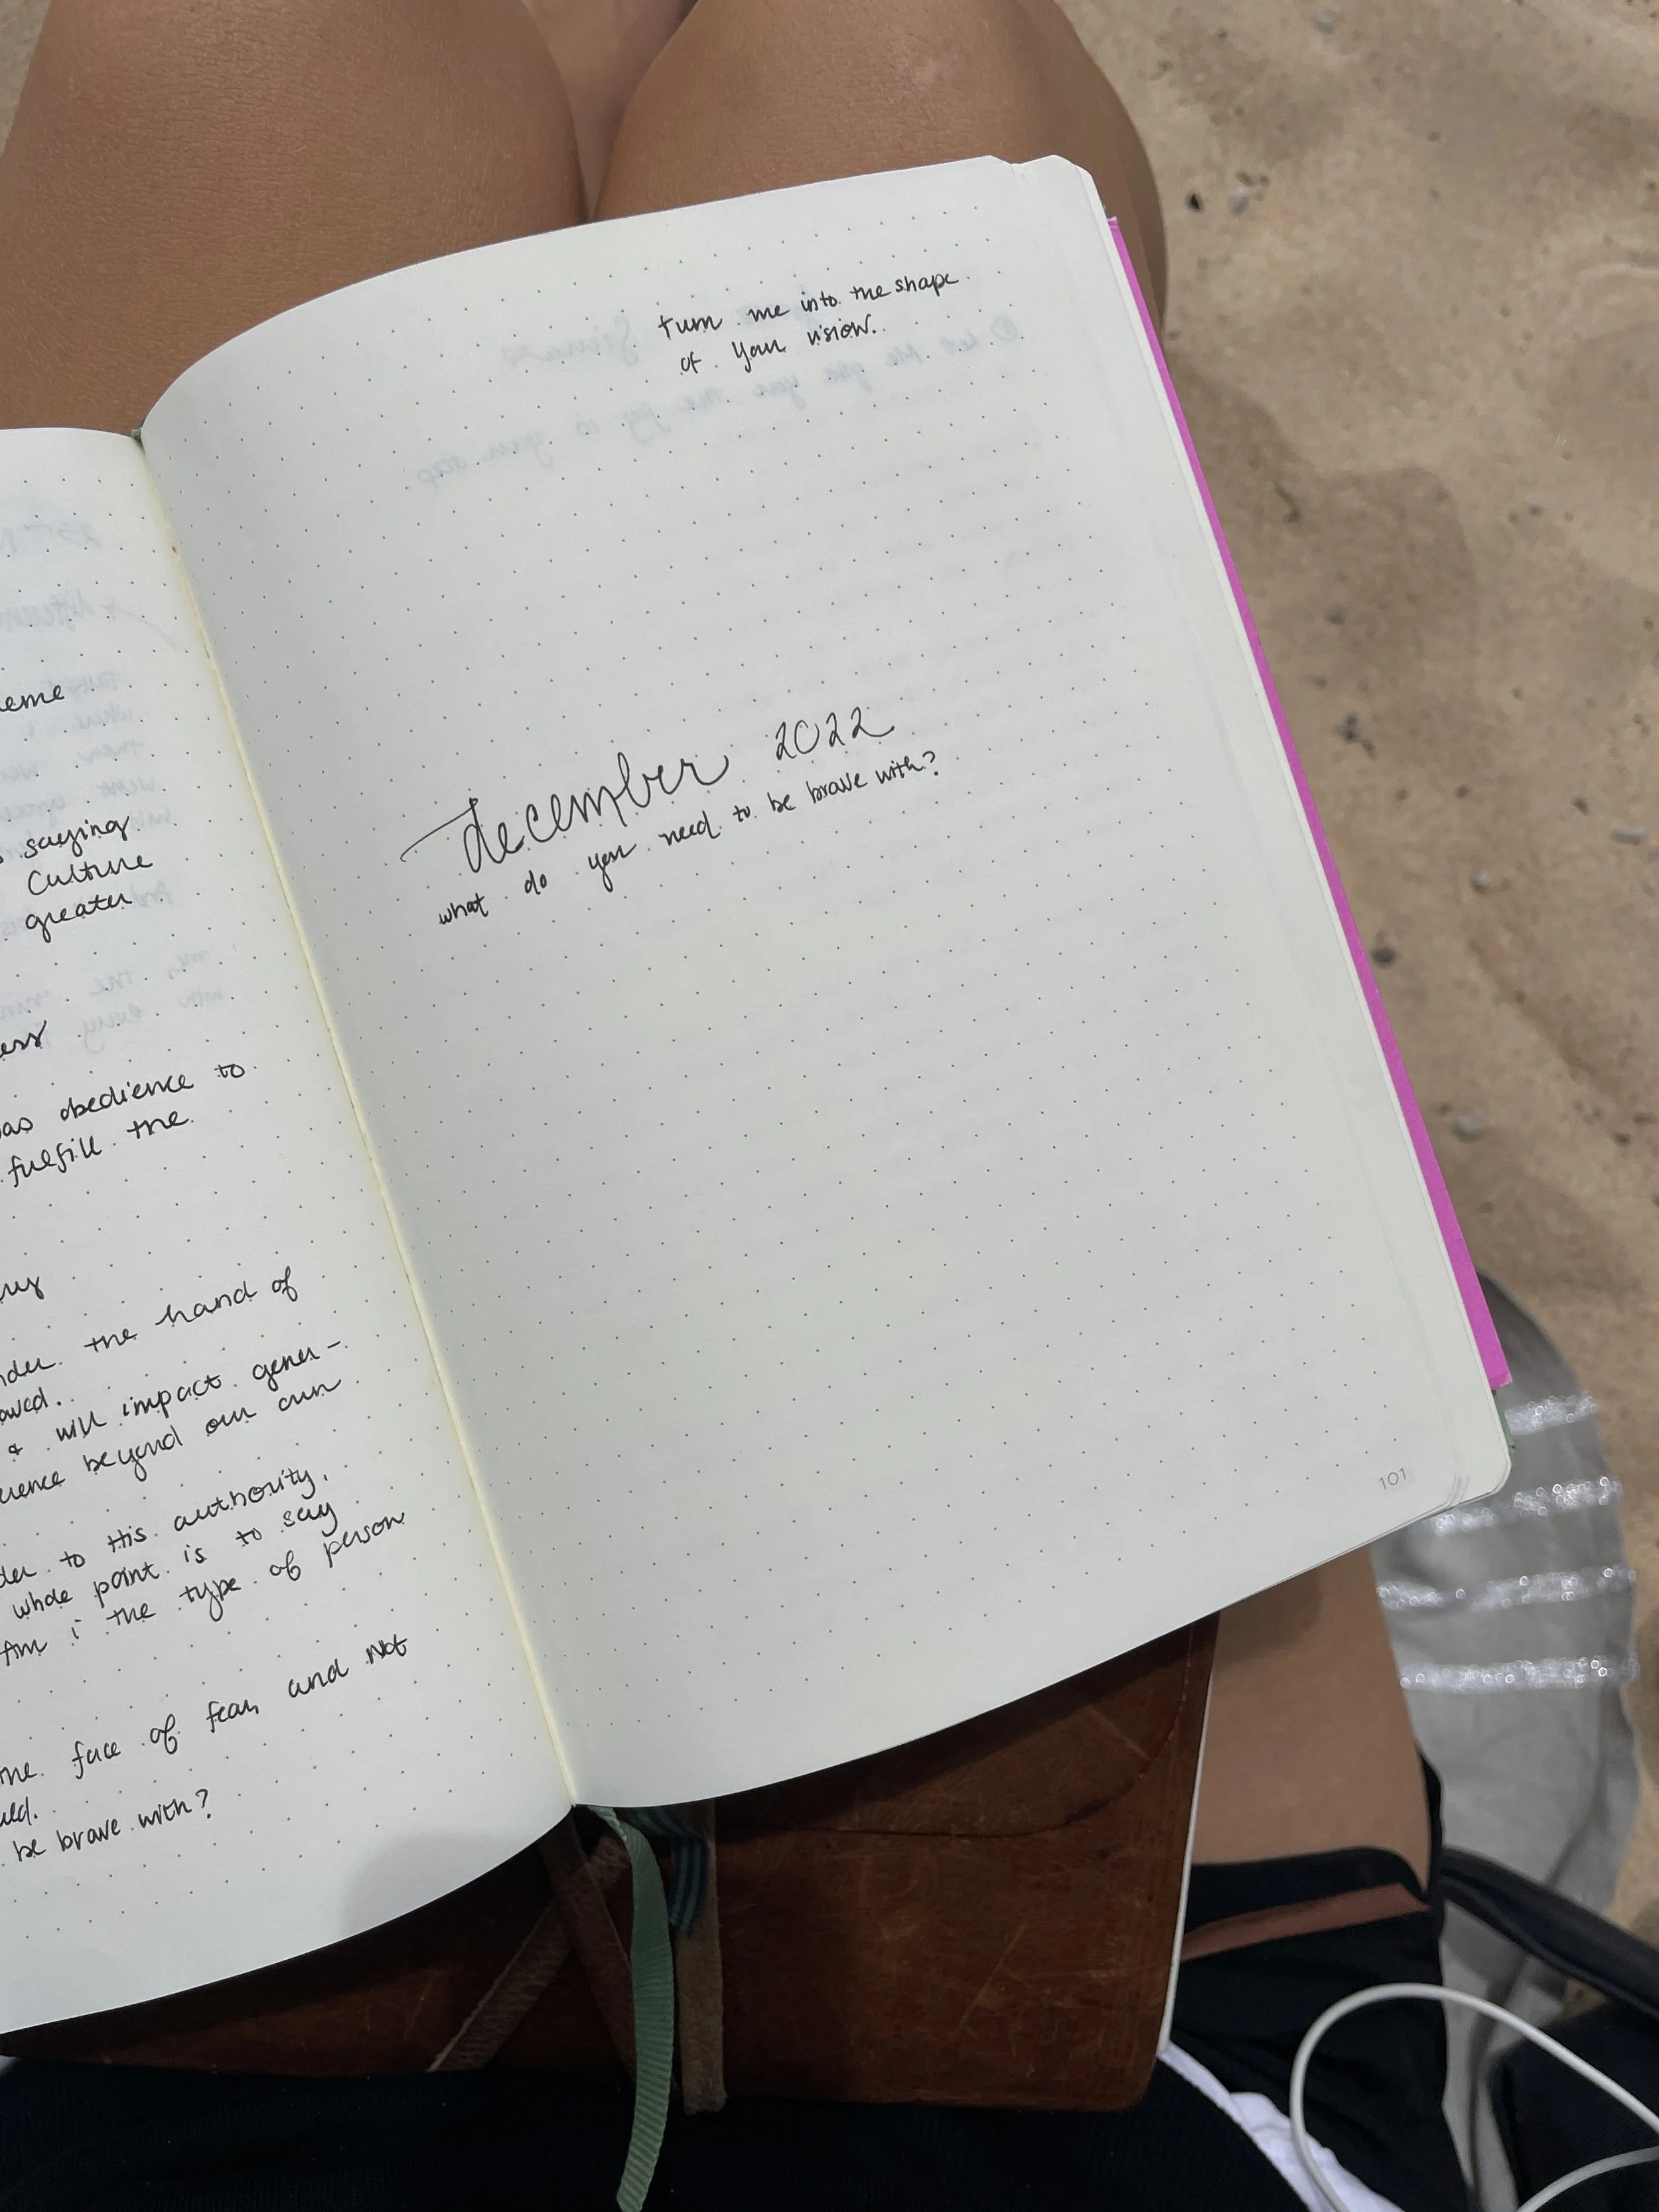 eme
saying
Culture
greater
ess
as obedience to
fulfill the
the hand of
& will impact gener-
beyond our own
to His authority.
whole point is to say
Am i the type of person
face of fear, and Not
be brave with?
turn me into the shape
of your vision.
december 2022
what do you need to be brave with?
101